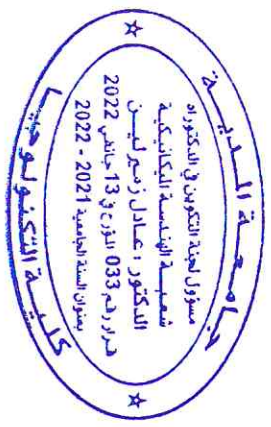 جامعة المدية
مسؤول لجنة التكوين في الدكتوراه
شعبة الهندسة الميكانيكية
الدكتور : عادل زميرلين
قرار رقم 033 المؤرخ في 13 جانفي 2022
بعنوان السنة الجامعية 2021 - 2022
كلية التكنولوجيا